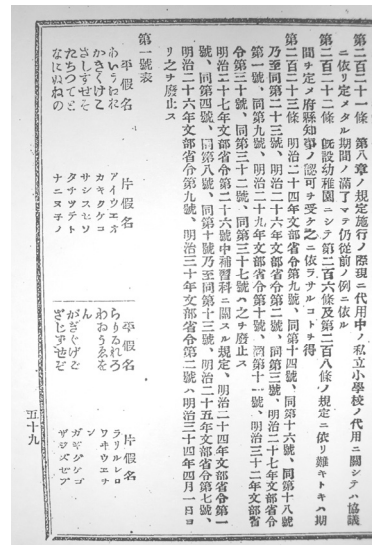 第二百二十一條　第八章ノ規定施行ノ際現ニ代用中ノ私立小學校ノ代用ニ關シテハ協議
ニ依リ定メタル期間ノ滿了マテ仍從前ノ例ニ依ル
第二百二十二條　旣設幼稚園ニシテ第二百六條及第二百八條ノ規定ニ依リ難キトキハ期
間ヲ定メ府縣知事ノ認可ヲ受ケ之ニ依ラサルコトヲ得
第二百二十三條　明治二十四年文部省令第九號、同第十四號、同第十六號、同第十八號
乃至同第二十三號、明治二十六年文部省令第二號、同第三號、明治二十七年文部省令
第一號、同第九號、明治二十九年文部省令第十號、同第十一號、明治三十二年文部省
令第三十號、同第三十二號、同第三十七號ハ之ヲ廢止ス
明治二十七年文部省令第二十六號中補習科ニ關スル規定、明治二十四年文部省令第一
號、同第四號、同第八號、同第十號乃至同第十三號、明治二十五年文部省令第七號、
明治二十六年文部省令第九號、明治三十年文部省令第二號ハ明治三十四年四月一日ヨ
リ之ヲ廢止ス
第一號表
平假名　片假名　平假名　片假名
あいうえお　アイウエオ　らりるれろ　ラリルレロ
かきくけこ　カキクケコ　わゐうゑを　ワヰウヱヲ
さしすせそ　サシスセソ　ん　ン
たちつてと　タチツテト　がぎぐげご　ガギグゲゴ
なにぬねの　ナニヌネノ　ざじずぜぞ　ザジズゼゾ
五十九